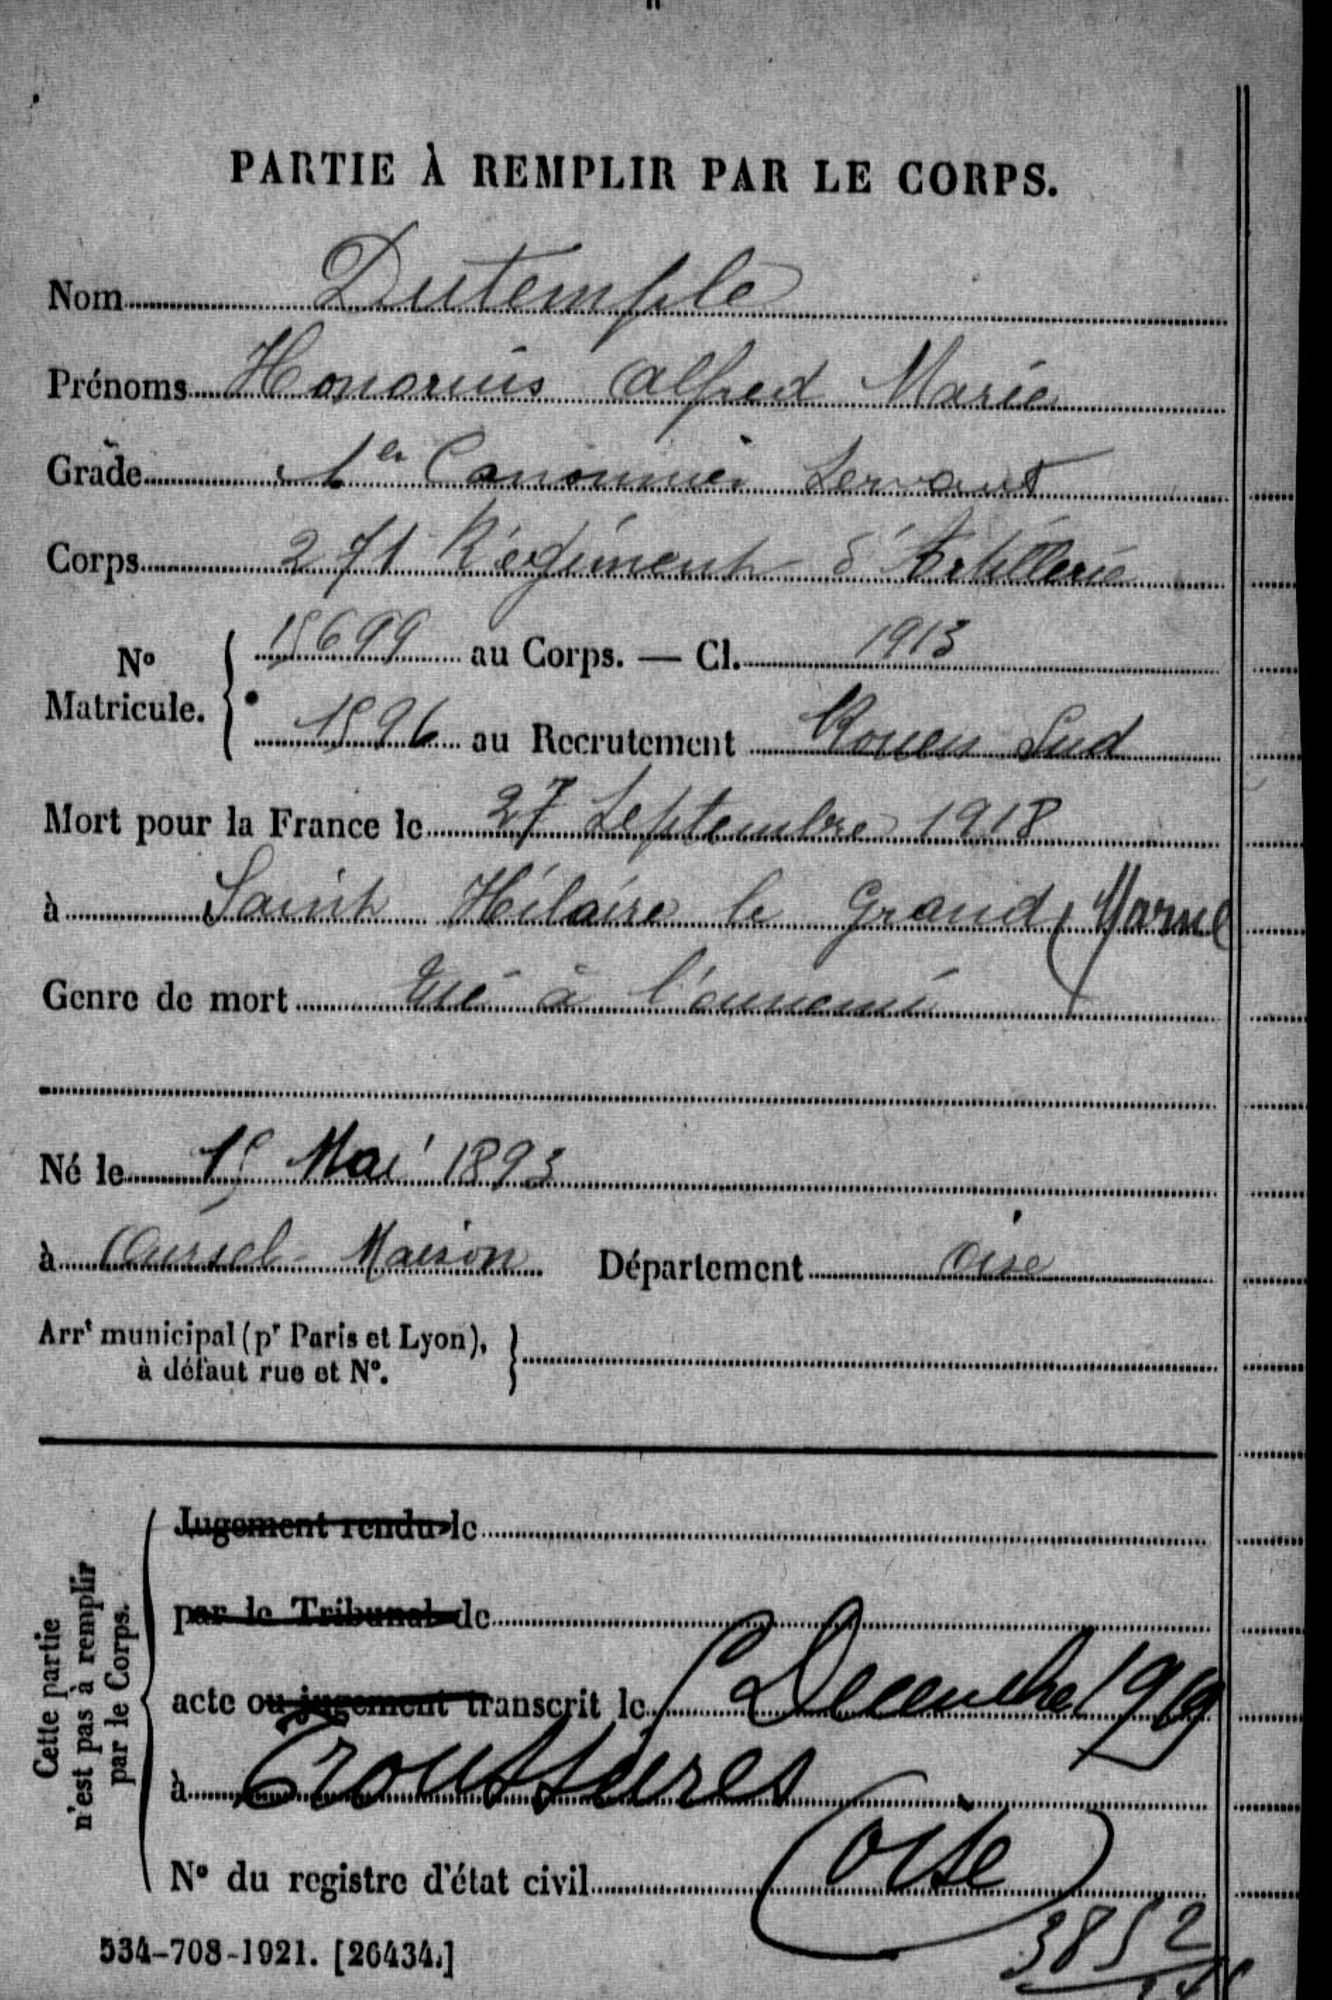 PARTIE À REMPLIR PAR LE CORPS.
Nom Dutemple
Prénoms Honorius Alfred Marie
Grade 1er Canonnier Servant
Corps 271 Régiment d'Artillerie
No Matricule. { 15699 au Corps. — Cl. 1913
1596 au Recrutement Rouen Sud
Mort pour la France le 27 Septembre 1918
à Saint Hilaire le Grand (Marne
Genre de mort Tué à l'ennemi
Né le 15 Mai 1893
à Maison Département Oise
Arrt municipal (pr Paris et Lyon), }
à défaut rue et No.
Cette partie
n'est pas à remplir
par le Corps.
Jugement rendu le
par le Tribunal de
acte ou jugement transcrit le Décembre 1919
à Troussures
(Oise)
No du registre d'état civil
534-708-1921. [26434.]
3852